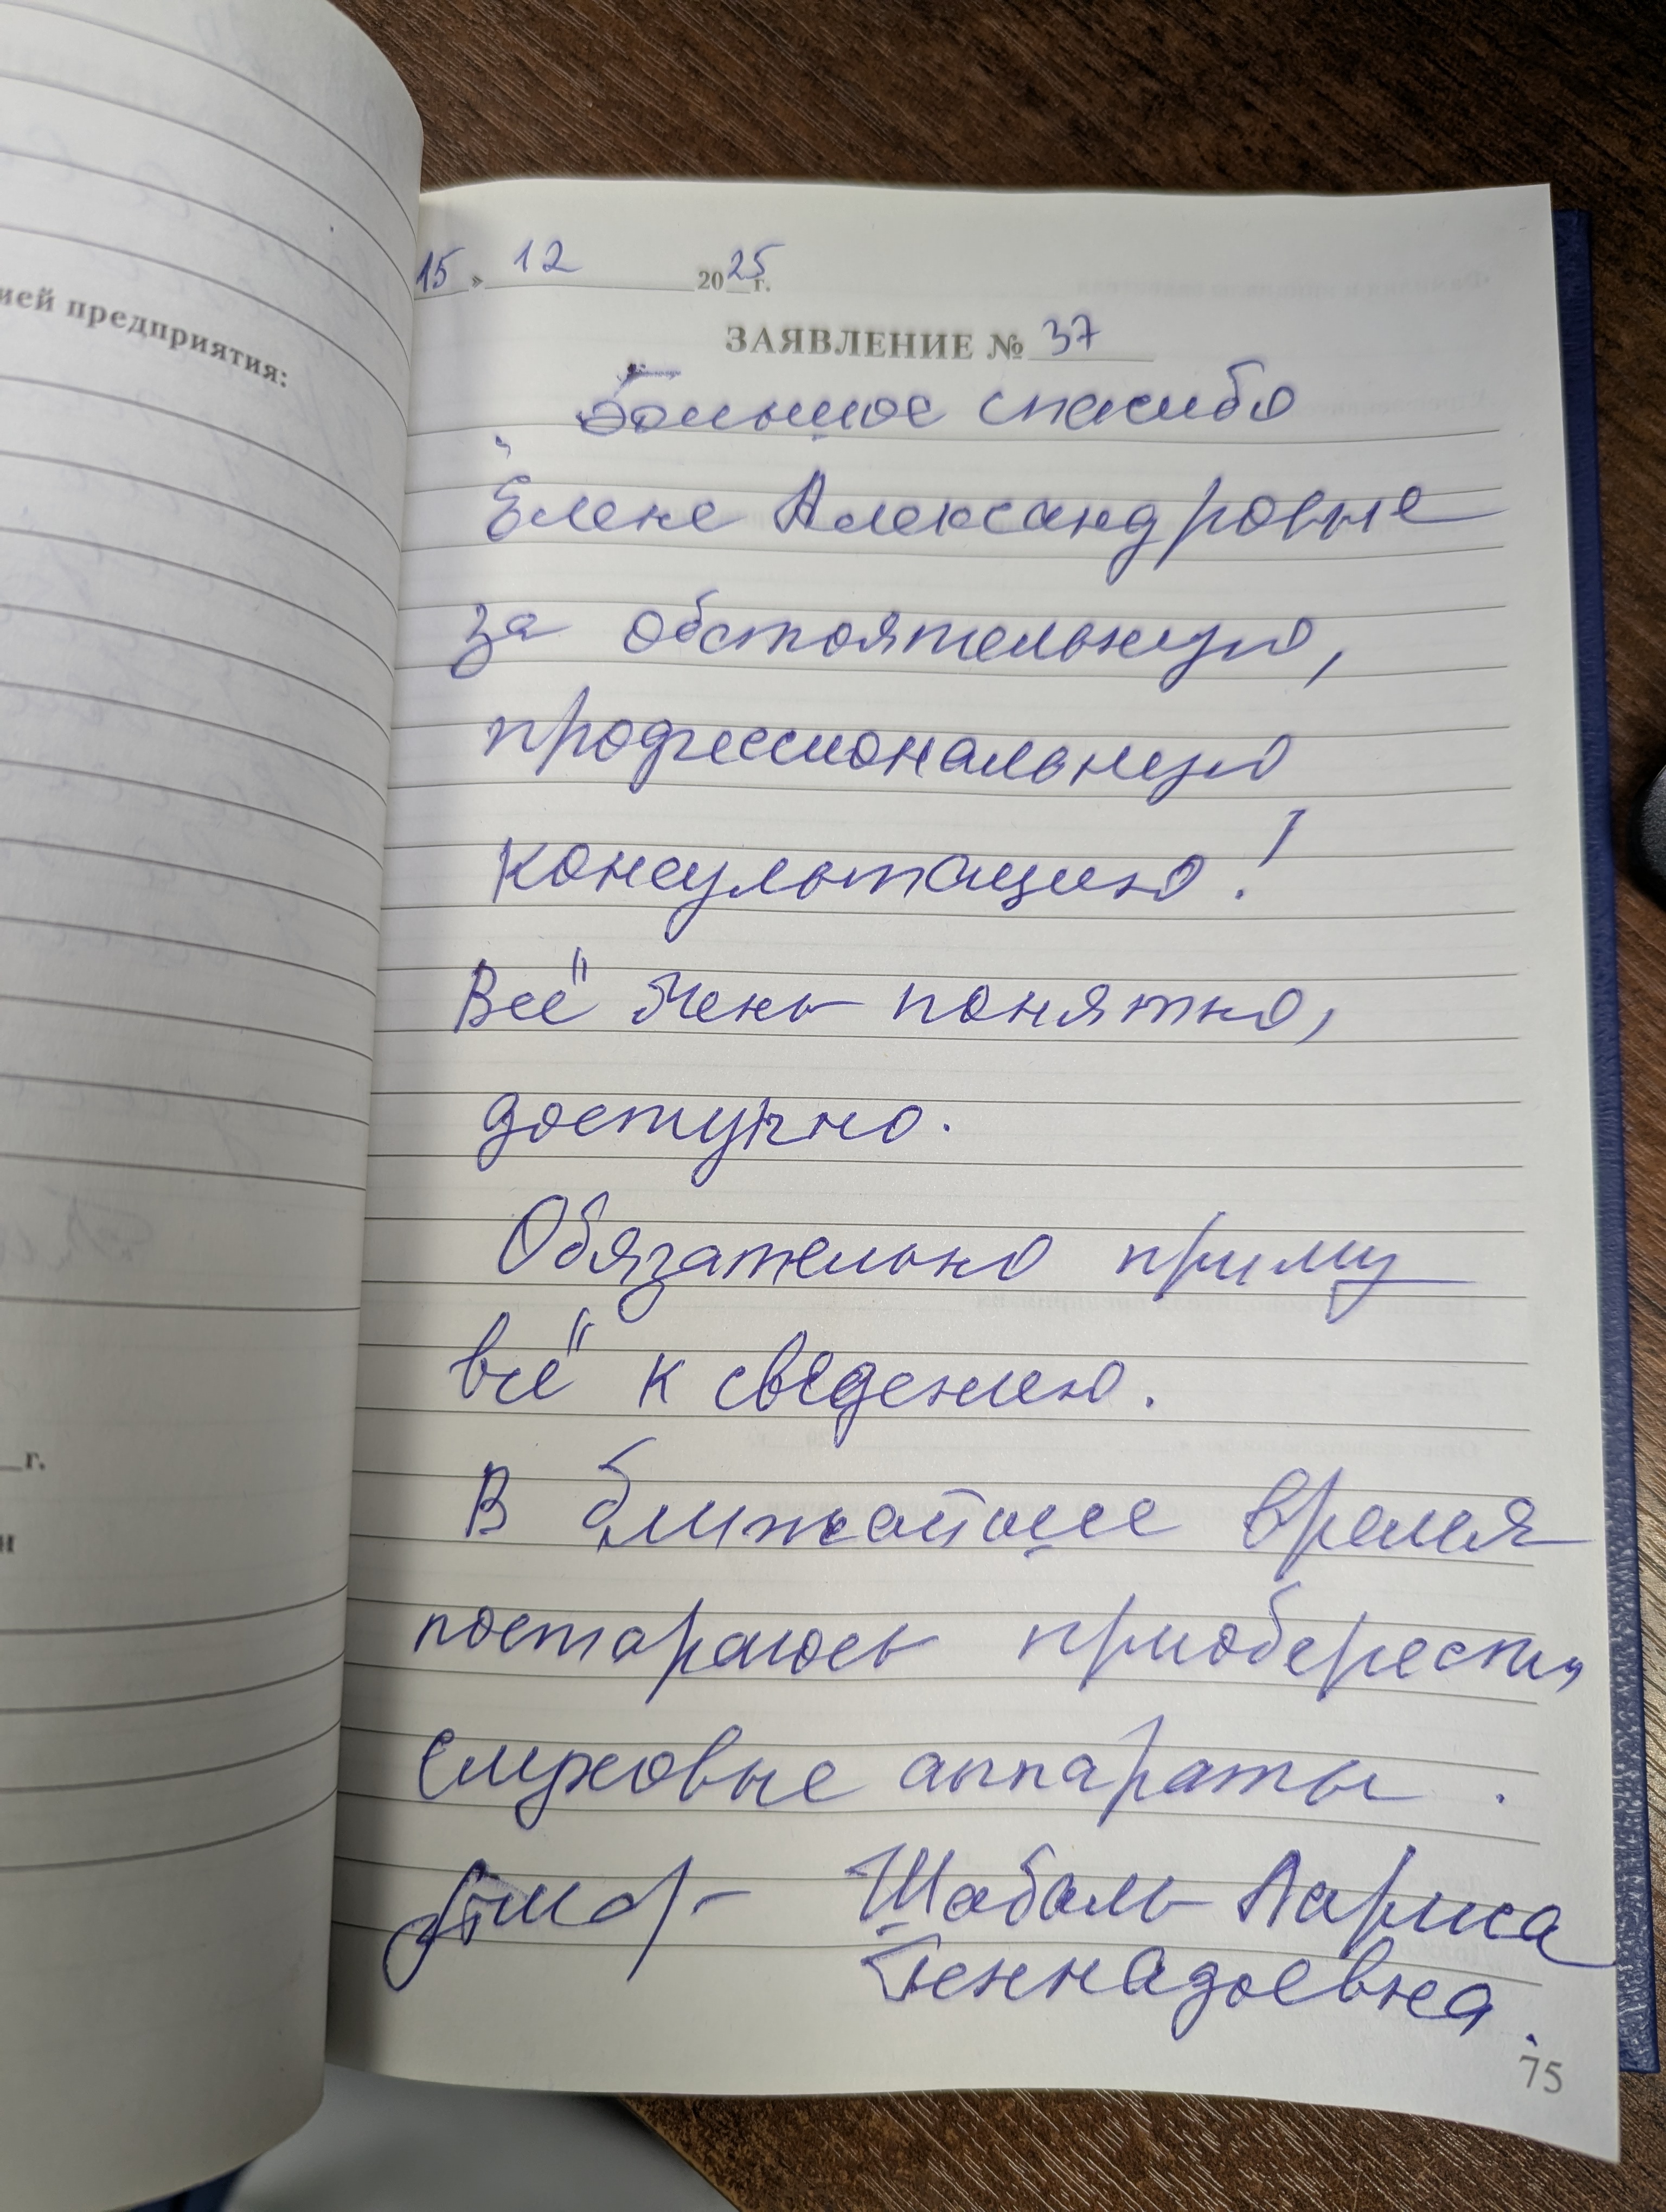 ией предприятия:
г.
и
15 » 12 2025 г.
ЗАЯВЛЕНИЕ № 37
Большое спасибо
Елене Александровне
за обстоятельную,
профессиональную
консультацию!
Всё очень понятно,
доступно.
Обязательно приму
всё к сведению.
В ближайшее время
постараюсь приобрести
слуховые аппараты.
Шабаль Лариса
Геннадьевна.
75